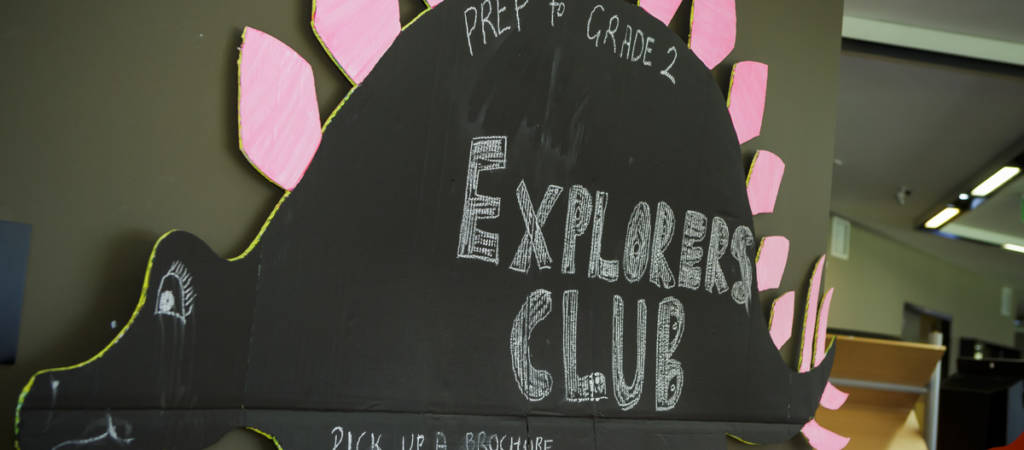 PREP to GRADE 2
EXPLORERS
CLUB
PICK UP A BROCHURE